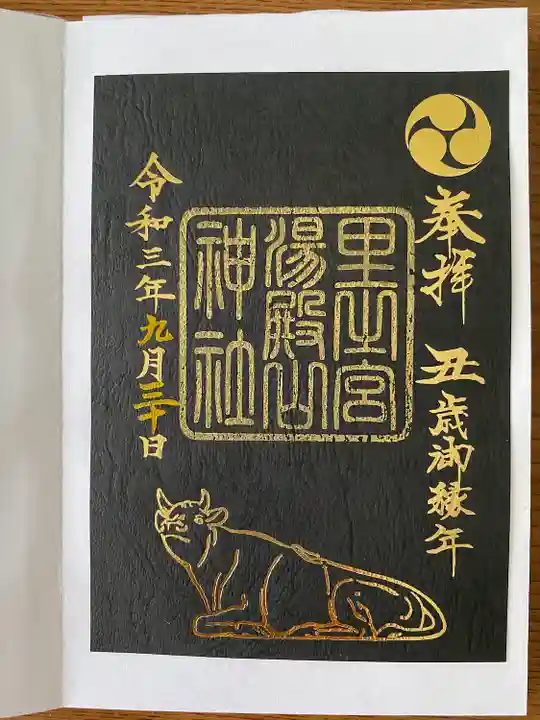 奉拝　丑歳御縁年
里之宮
湯殿山
神社
令和三年九月三十日